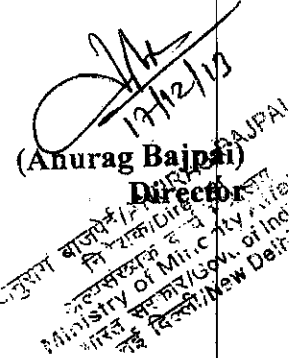 17/12/13
(Anurag Bajpai)
Director
अनुराग बाजपेई/ANURAG BAJPAI
निदेशक/Director
अल्पसंख्यक कार्य मंत्रालय
Ministry of Minority Affairs
भारत सरकार/Govt. of India
नई दिल्ली/New Delhi